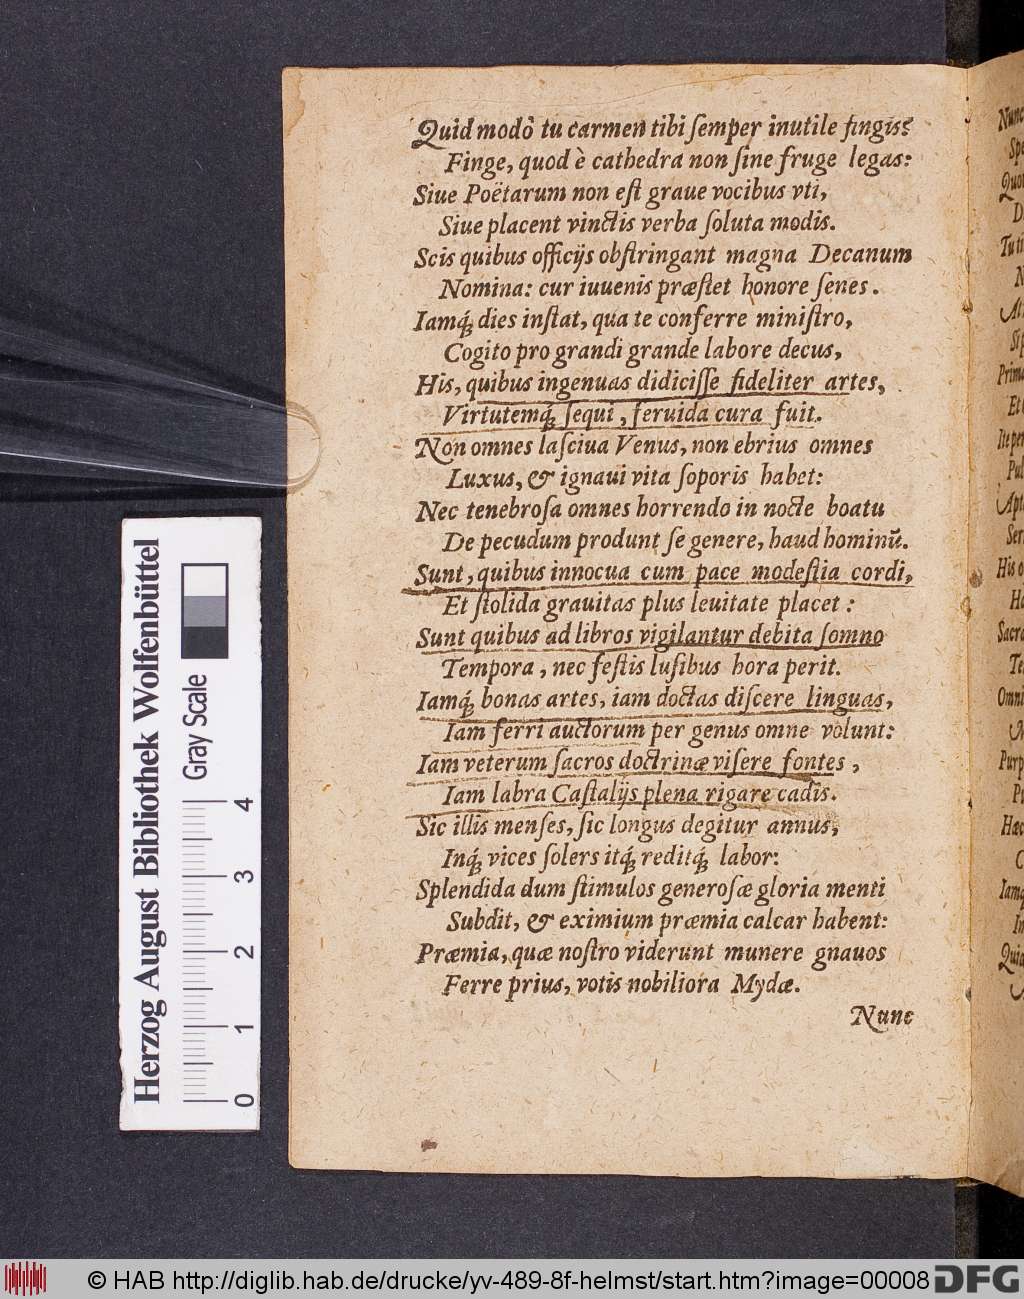 Quid modò tu carmen tibi ſemper inutile fingis?
Finge, quod è cathedra non ſine fruge legas:
Siue Poëtarum non eſt graue vocibus vti,
Siue placent vinctis verba ſoluta modis.
Scis quibus officijs obſtringant magna Decanum
Nomina: cur iuuenis præſtet honore ſenes.
Iamq́; dies inſtat, qua te conferre miniſtro,
Cogito pro grandi grande labore decus,
His, quibus ingenuas didiciſſe fideliter artes,
Virtutemq́; ſequi, feruida cura fuit.
Non omnes laſciua Venus, non ebrius omnes
Luxus, & ignaui vita ſoporis habet:
Nec tenebroſa omnes horrendo in nocte boatu
De pecudum produnt ſe genere, haud hominũ.
Sunt, quibus innocua cum pace modeſtia cordi,
Et ſtolida grauitas plus leuitate placet:
Sunt quibus ad libros vigilantur debita ſomno
Tempora, nec feſtis luſibus hora perit.
Iamq́; bonas artes, iam doctas diſcere linguas,
Iam ferri auctorum per genus omne volunt:
Iam veterum ſacros doctrinæ viſere fontes,
Iam labra Caſtalijs plena rigare cadis.
Sic illis menſes, ſic longus degitur annus,
Inq́; vices ſolers itq́; reditq́; labor:
Splendida dum ſtimulos generoſæ gloria menti
Subdit, & eximium præmia calcar habent:
Præmia, quæ noſtro viderunt munere gnauos
Ferre prius, votis nobiliora Mydæ.
Nunc
Herzog August Bibliothek Wolfenbüttel
Gray Scale
0 1 2 3 4
© HAB http://diglib.hab.de/drucke/yv-489-8f-helmst/start.htm?image=00008
DFG